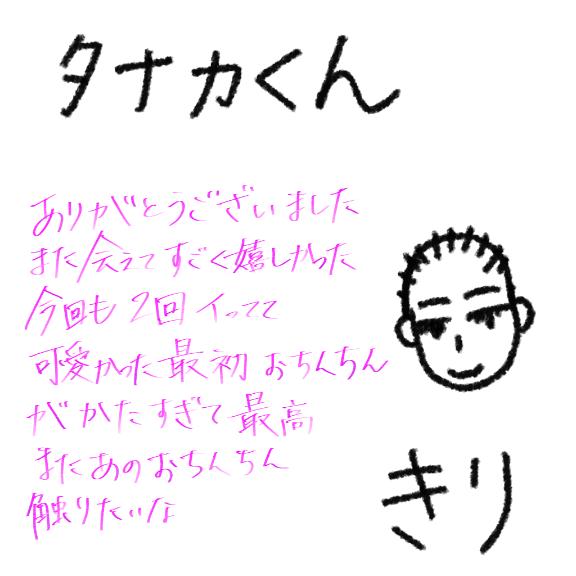 タナカくん
ありがとうございました
また会えてすごく嬉しかった
今回も2回イってて
可愛かった最初おちんちん
がかたすぎて最高
またあのおちんちん
触りたいな
きり